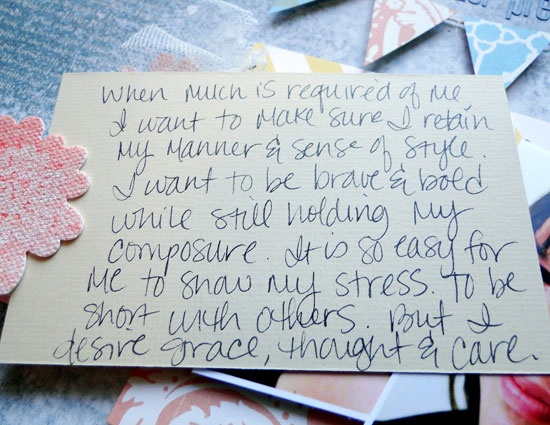 When much is required of me
I want to make sure I retain
my manner & sense of style.
I want to be brave & bold
while still holding my
composure. It is so easy for
me to show my stress. To be
short with others. But I
desire grace, thought & care.